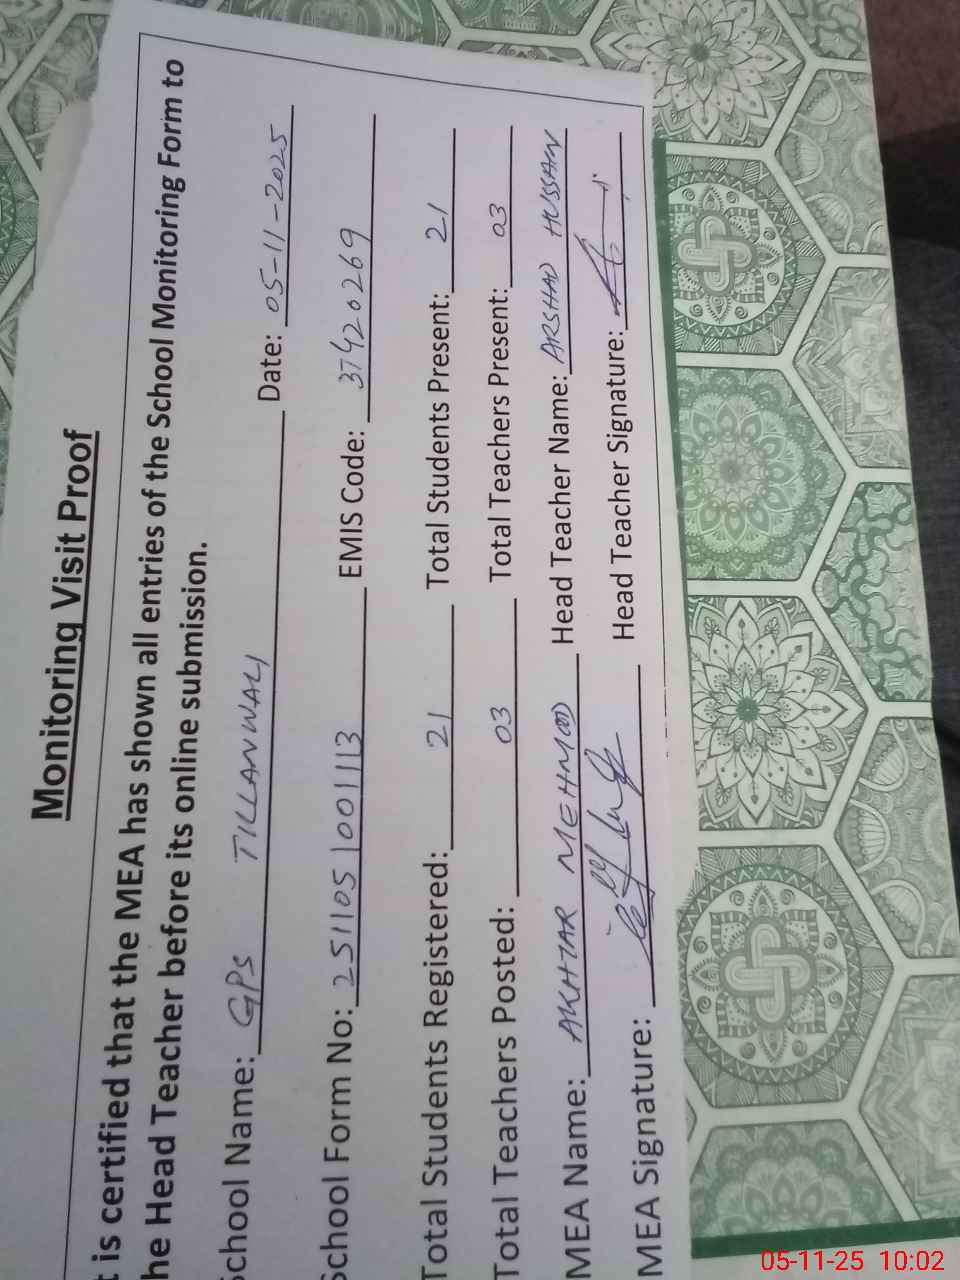 Monitoring Visit Proof
t is certified that the MEA has shown all entries of the School Monitoring Form to
he Head Teacher before its online submission.
School Name: GPS TILLANWALI Date: 05-11-2025
School Form No: 2511051001113 EMIS Code: 37420269
Total Students Registered: 21 Total Students Present: 21
Total Teachers Posted: 03 Total Teachers Present: 03
MEA Name: AKHTAR MEHMOOD Head Teacher Name: ARSHAD HUSSAN
MEA Signature: Head Teacher Signature:
05-11-25 10:02